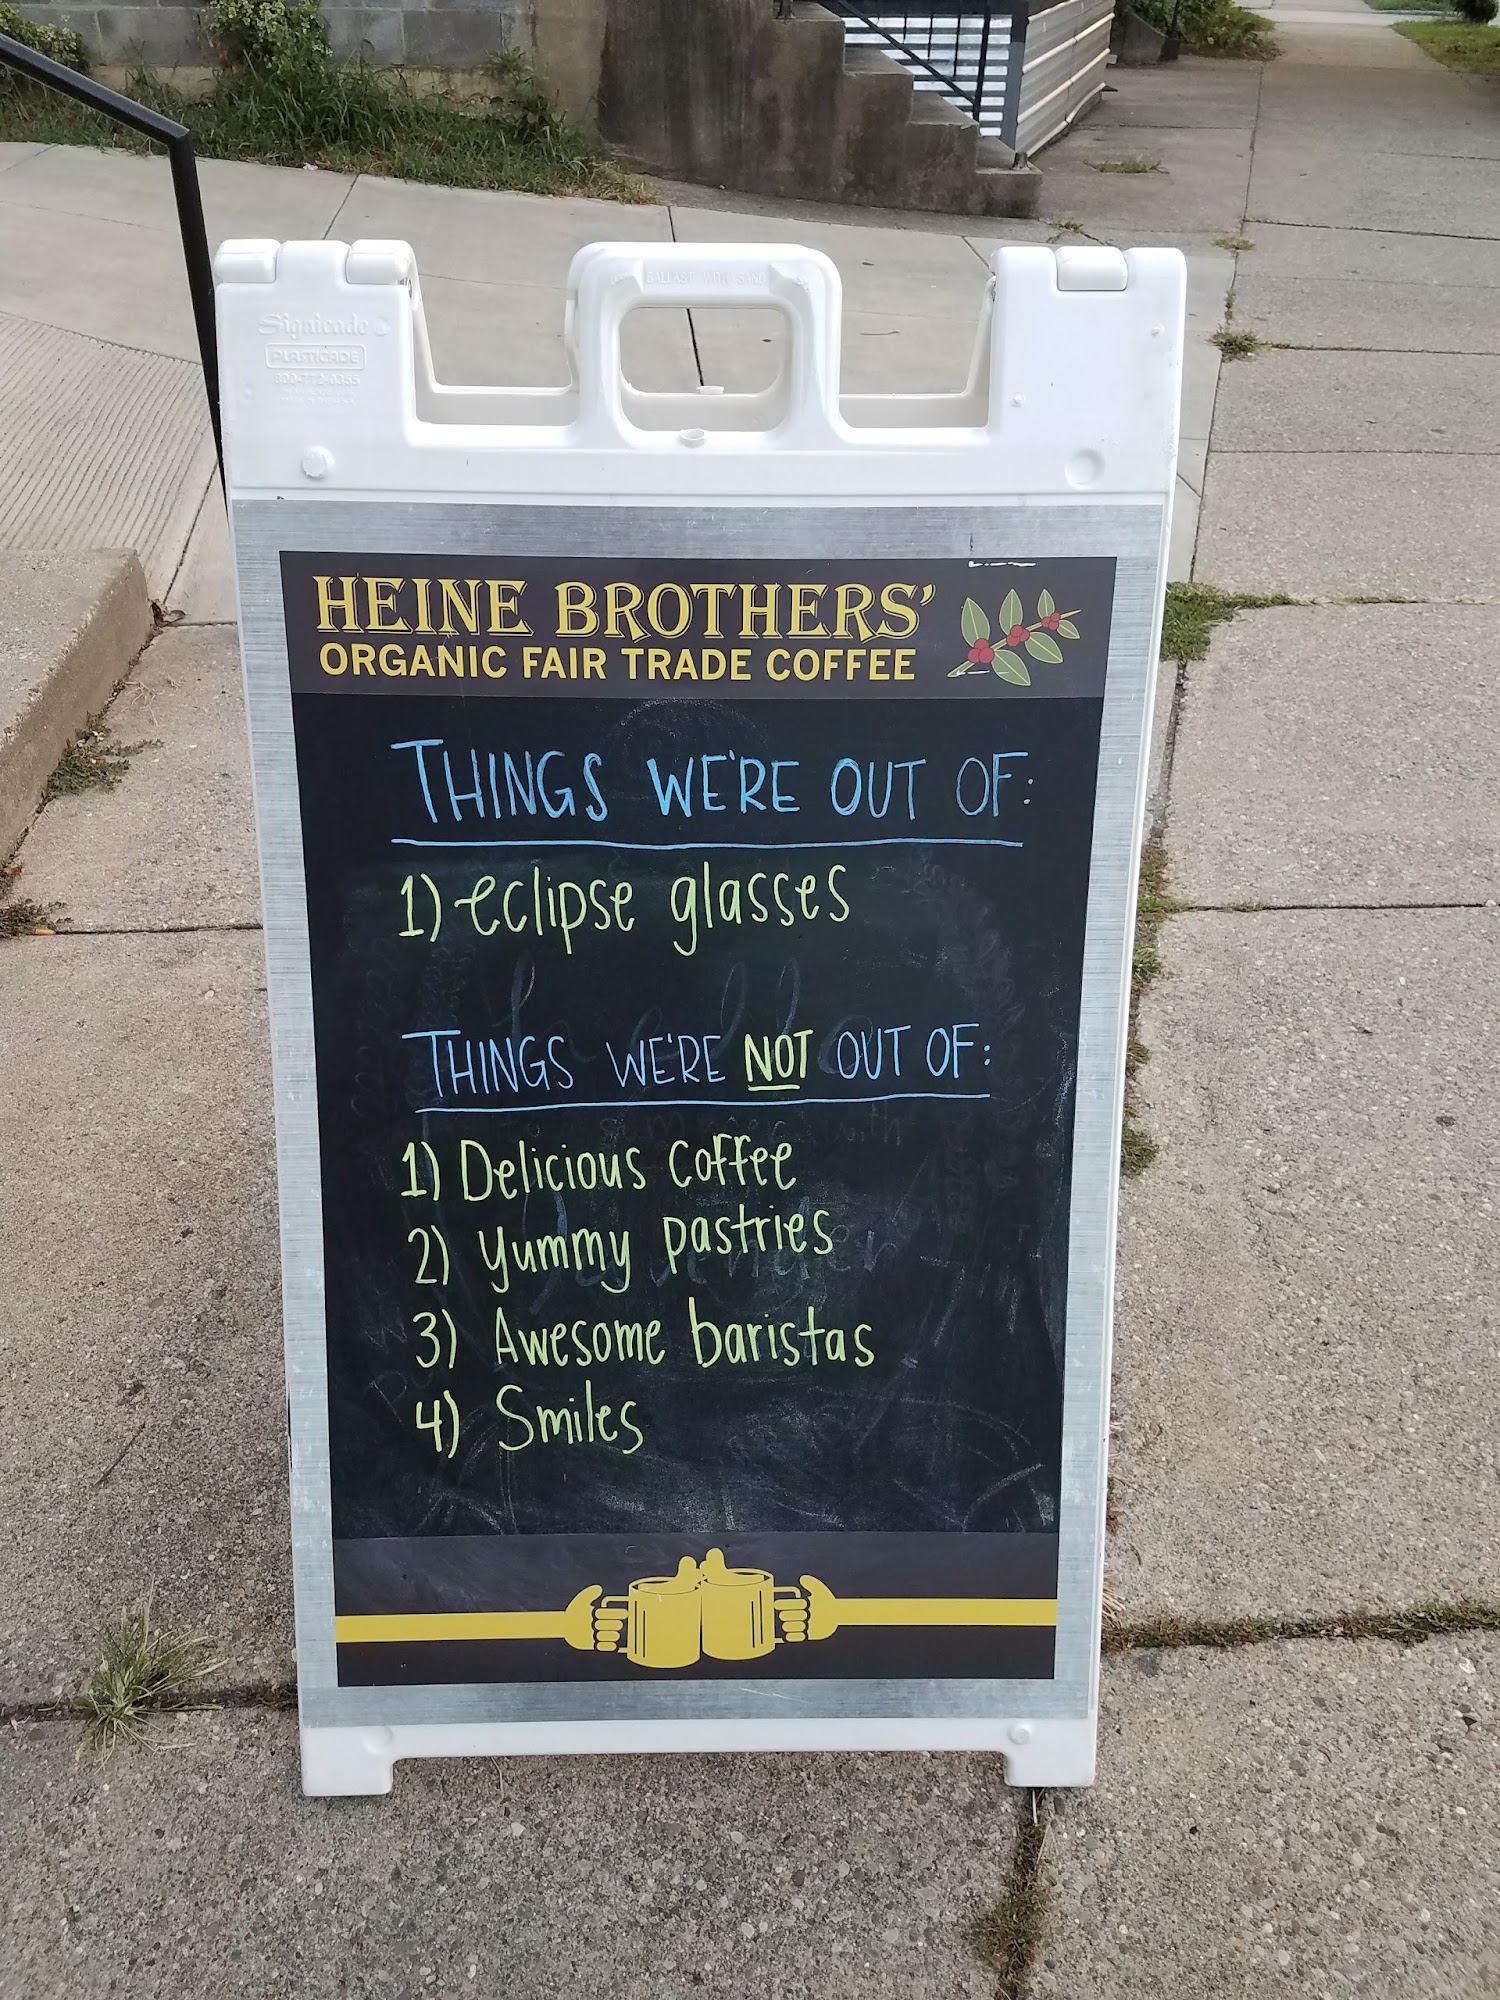 BALLAST WITH SAND
Signicade
PLASTICADE
800-772-0355
HEINE BROTHERS'
ORGANIC FAIR TRADE COFFEE
THINGS WE'RE OUT OF:
1) eclipse glasses
THINGS WE'RE NOT OUT OF:
1) Delicious coffee
2) yummy pastries
3) Awesome baristas
4) Smiles